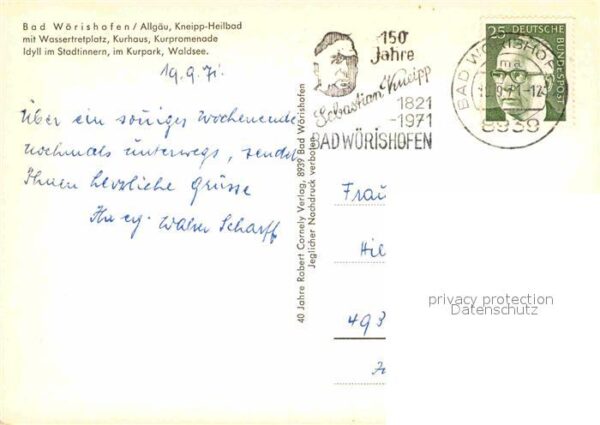 Bad Wörishofen / Allgäu, Kneipp-Heilbad
mit Wassertretplatz, Kurhaus, Kurpromenade
Idyll im Stadtinnern, im Kurpark, Waldsee.
19.9.71.
Über ein sonniges Wochenende
nochmals unterwegs, sendet
Ihnen herzliche Grüsse
Ihr erg. Walter Scharff
40 Jahre Robert Cornely Verlag, 8939 Bad Wörishofen
Jeglicher Nachdruck verboten
150
Jahre
Sebastian Kneipp
1821
-1971
BAD WÖRISHOFEN
BAD WÖRISHOFEN
8939
25
DEUTSCHE
BUNDESPOST
Frau
Hil
493
privacy protection
Datenschutz